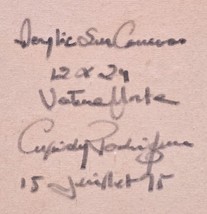 Acrylic Sur Canevas
12 x 24
Nature Morte
15 Juillet 95